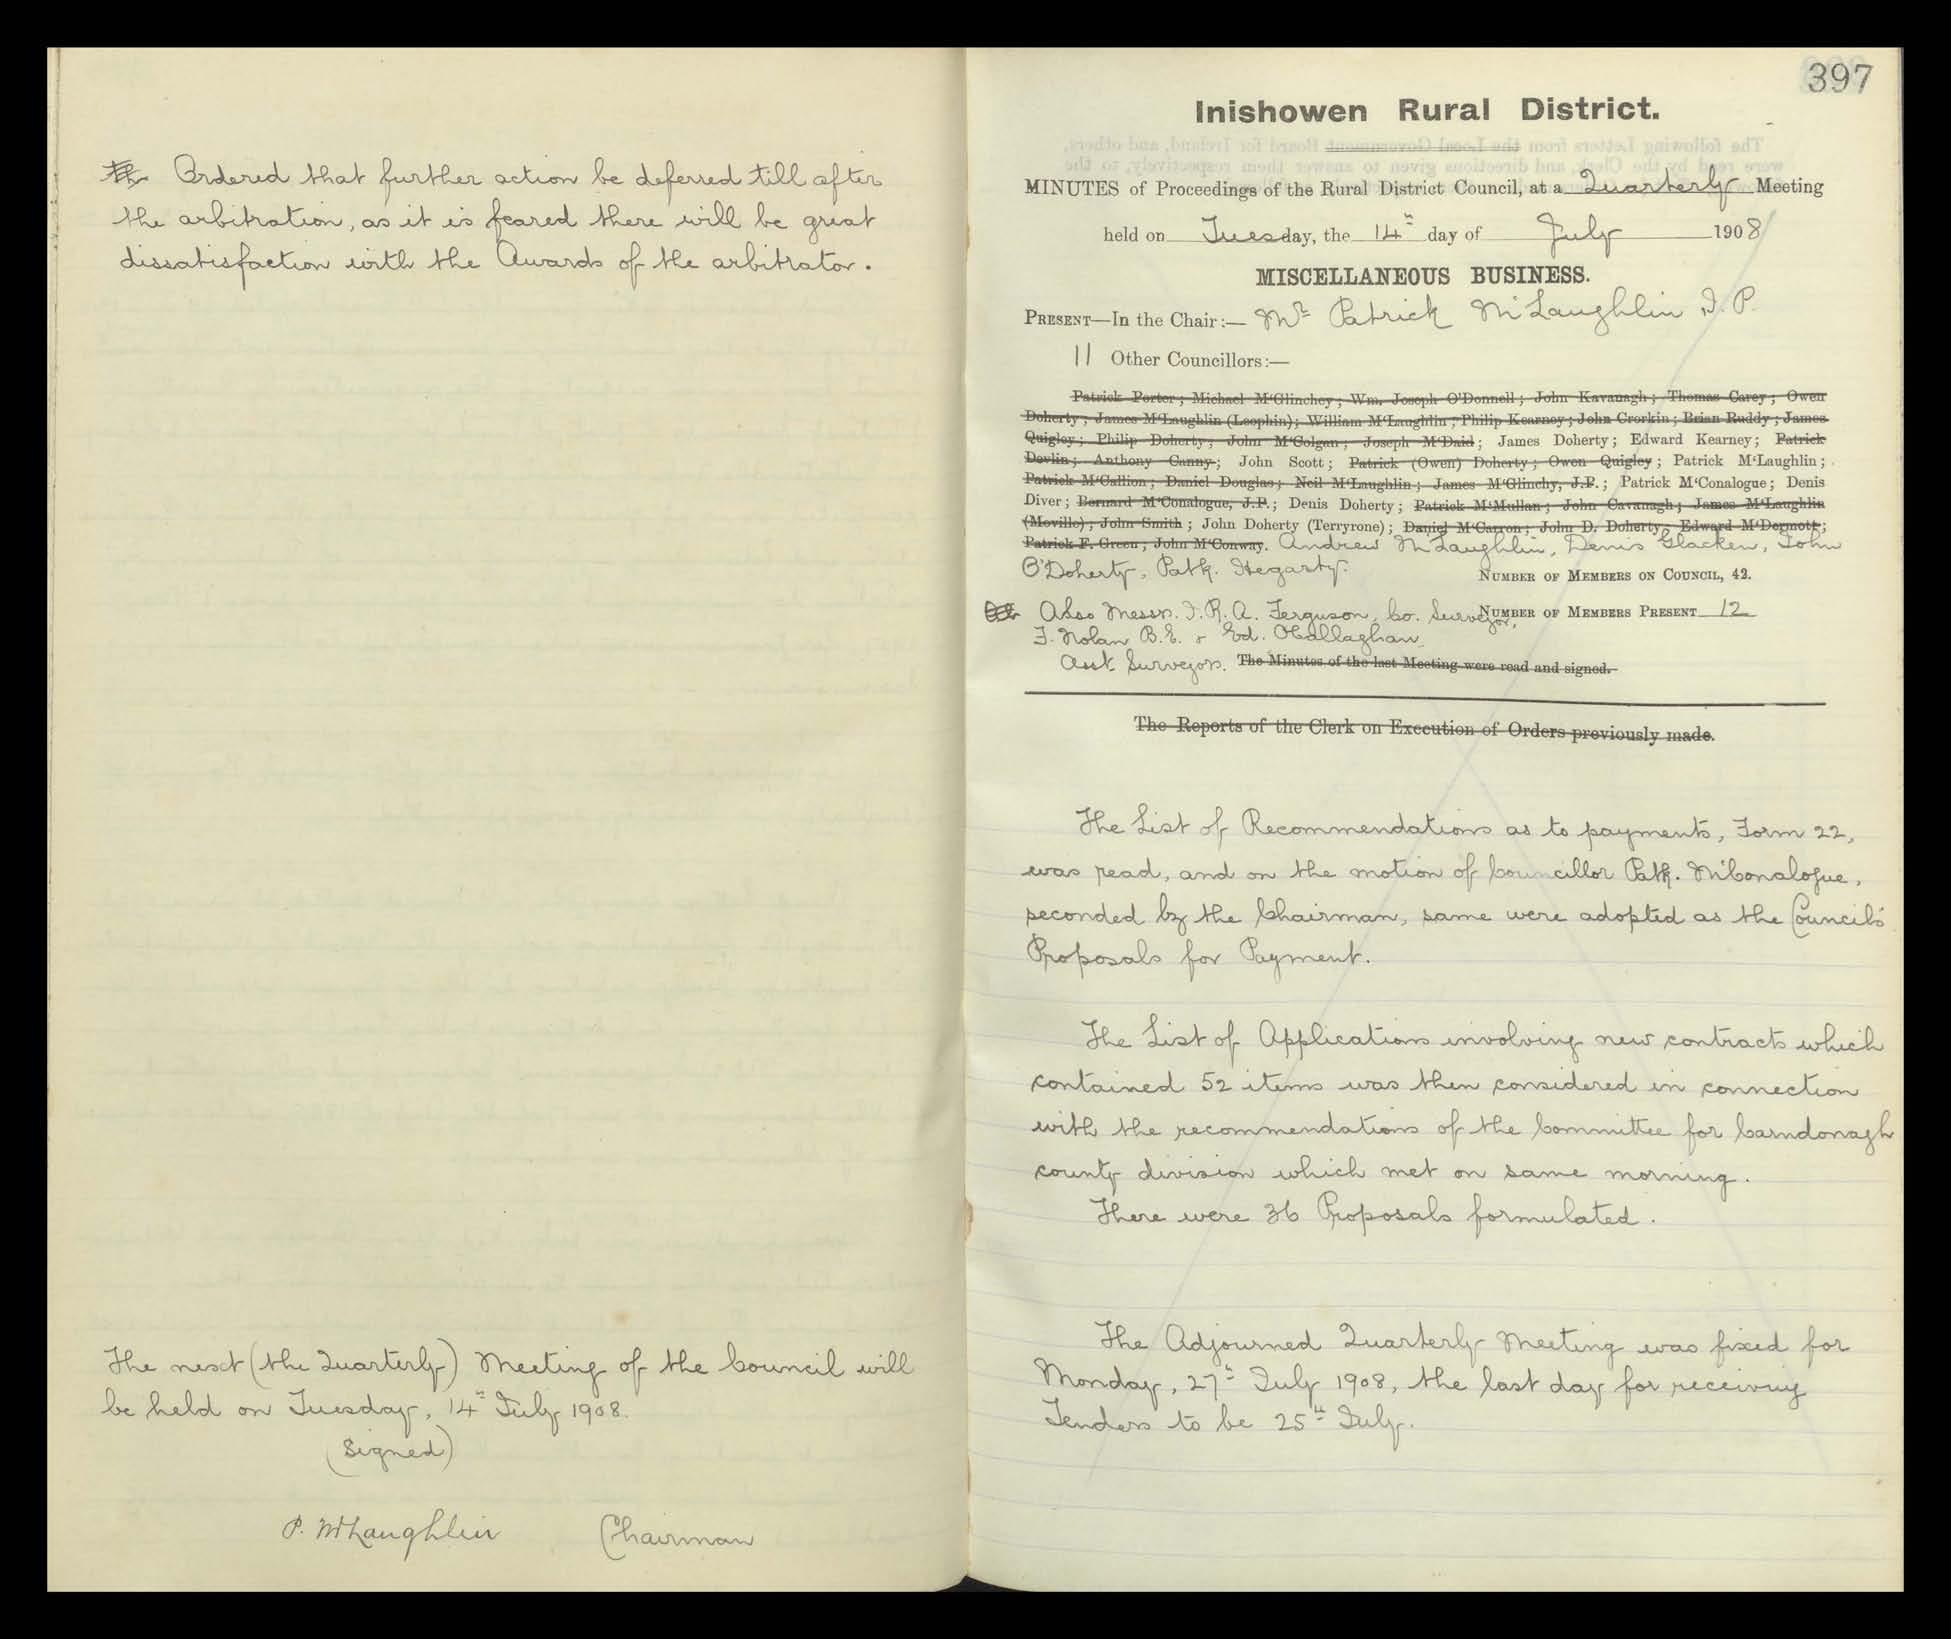 Ordered that further action be deferred till after
the arbitration, as it is feared there will be great
dissatisfaction with the Awards of the arbitrator.
The next (the Quarterly) Meeting of the Council will
be held on Tuesday, 14th July 1908.
(Signed)
P. McLaughlin Chairman
397
Inishowen Rural District.
MINUTES of Proceedings of the Rural District Council, at a Quarterly Meeting
held on Tuesday, the 14th day of July 1908
MISCELLANEOUS BUSINESS.
PRESENT—In the Chair:— Mr Patrick McLaughlin J.P.
11 Other Councillors:—
Patrick Porter; Michael M'Glinchey; Wm. Joseph O'Donnell; John Kavanagh; Thomas Carey; Owen
Doherty; James M'Laughlin (Leophin); William M'Laughlin; Philip Kearney; John Crorkin; Brian Ruddy; James
Quigley; Philip Doherty; John M'Colgan; Joseph M'Daid; James Doherty; Edward Kearney; Patrick
Devlin; Anthony Canny; John Scott; Patrick (Owen) Doherty; Owen Quigley; Patrick M'Laughlin;
Patrick M'Callion; Daniel Douglas; Neil M'Laughlin; James M'Glinchy, J.P.; Patrick M'Conalogue; Denis
Diver; Bernard M'Conalogue, J.P.; Denis Doherty; Patrick M'Mullan; John Cavanagh; James M'Laughlin
(Moville); John Smith; John Doherty (Terryrone); Daniel M'Carron; John D. Doherty; Edward M'Dermott;
Patrick F. Green; John M'Conway. Andrew McLaughlin, Denis Glacken, John
O'Doherty, Patk. Hegarty.
NUMBER OF MEMBERS ON COUNCIL, 42.
Also Messrs. J. R. A. Ferguson, Co. Surveyor, NUMBER OF MEMBERS PRESENT 12
J. Nolan B.E. & Ed. O'Callaghan
Asst. Surveyors. The Minutes of the last Meeting were read and signed.
The Reports of the Clerk on Execution of Orders previously made.
The List of Recommendations as to payments, Form 22,
was read, and on the motion of Councillor Patk. McConalogue,
seconded by the Chairman, same were adopted as the Council's
Proposals for Payment.
The List of Applications involving new contracts which
contained 52 items was then considered in connection
with the recommendations of the Committee for Carndonagh
county division which met on same morning.
There were 36 Proposals formulated.
The Adjourned Quarterly Meeting was fixed for
Monday, 27th July 1908, the last day for receiving
Tenders to be 25th July.